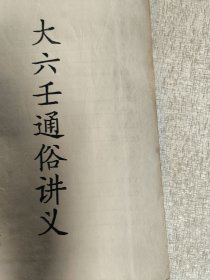 大六壬通俗讲义